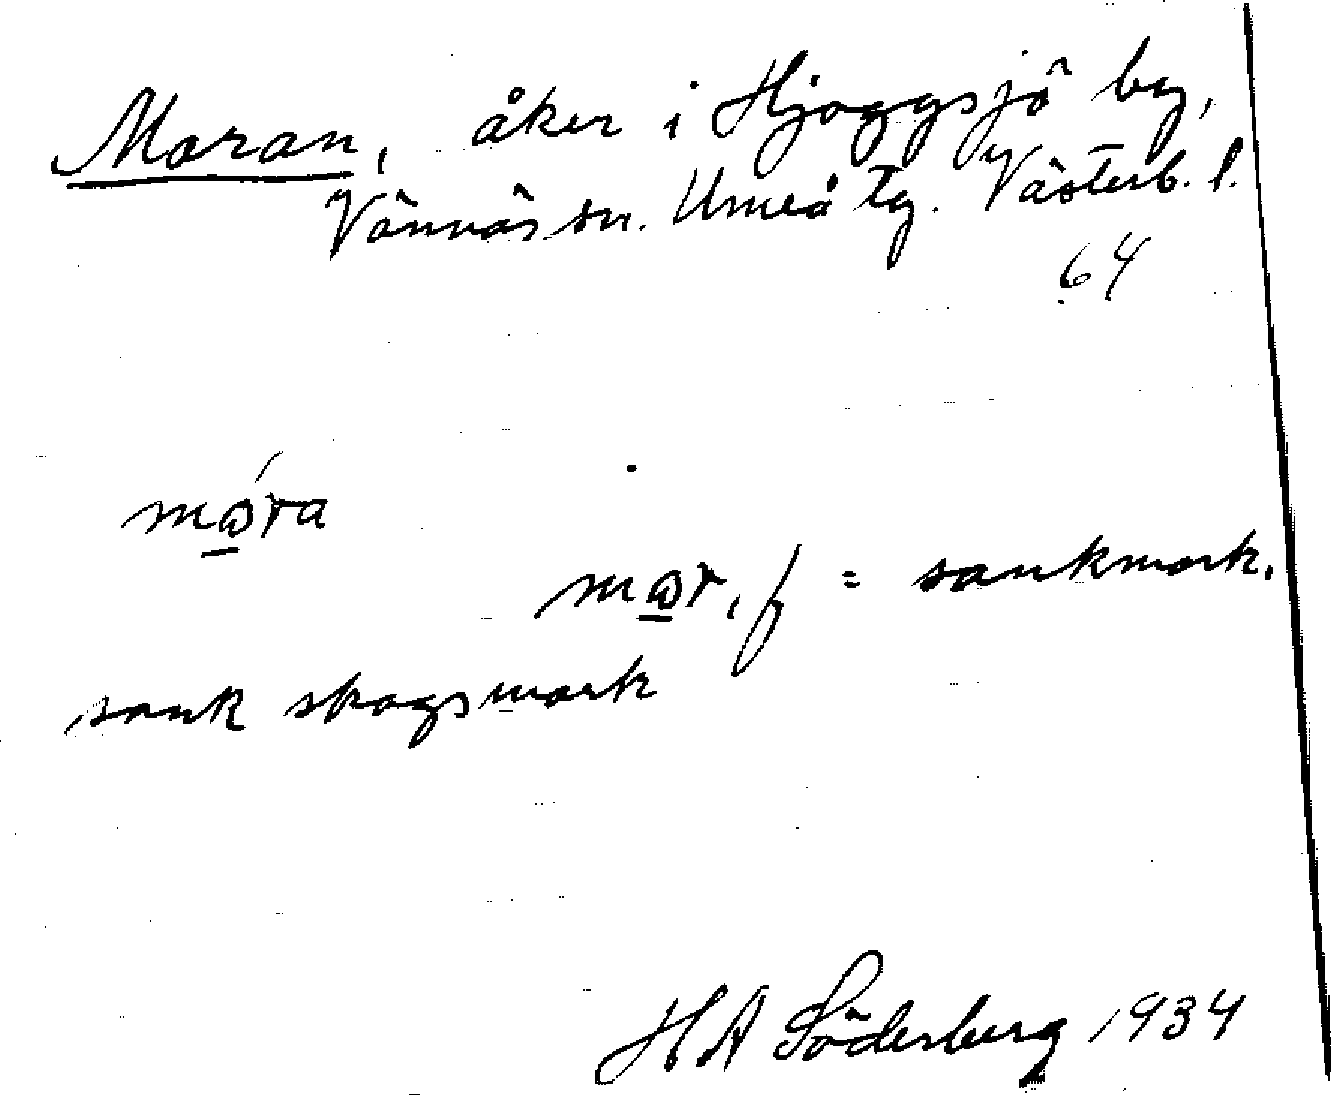 Moran, åker i Hjoggsjö by,
Vännäs sn. Umeå tg. Västerb. l.
64
mǫ́ra
mǫr, f = sankmark.
sank skogsmark
H A Söderberg 1934